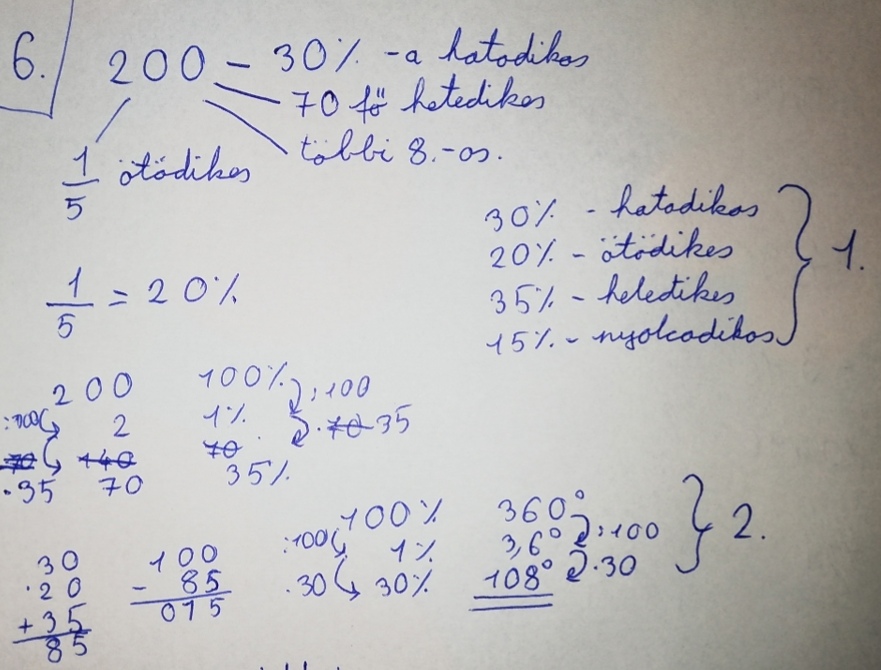 6. 200 - 30% -a hatodikos
70 fő hetedikes
többi 8.-os.
1/5 ötödikes
30% - hatodikos
20% - ötödikes
35% - heledikes
15% - nyolcadikos
1.
1/5 = 20%
200 100% :100
:100 2 1% ·70 35
70 140 70
·35 70 35%
100% 360° :100
:100 1% 3,6° ·30
·30 30% 108°
2.
30
·20
+35
85
100
- 85
015